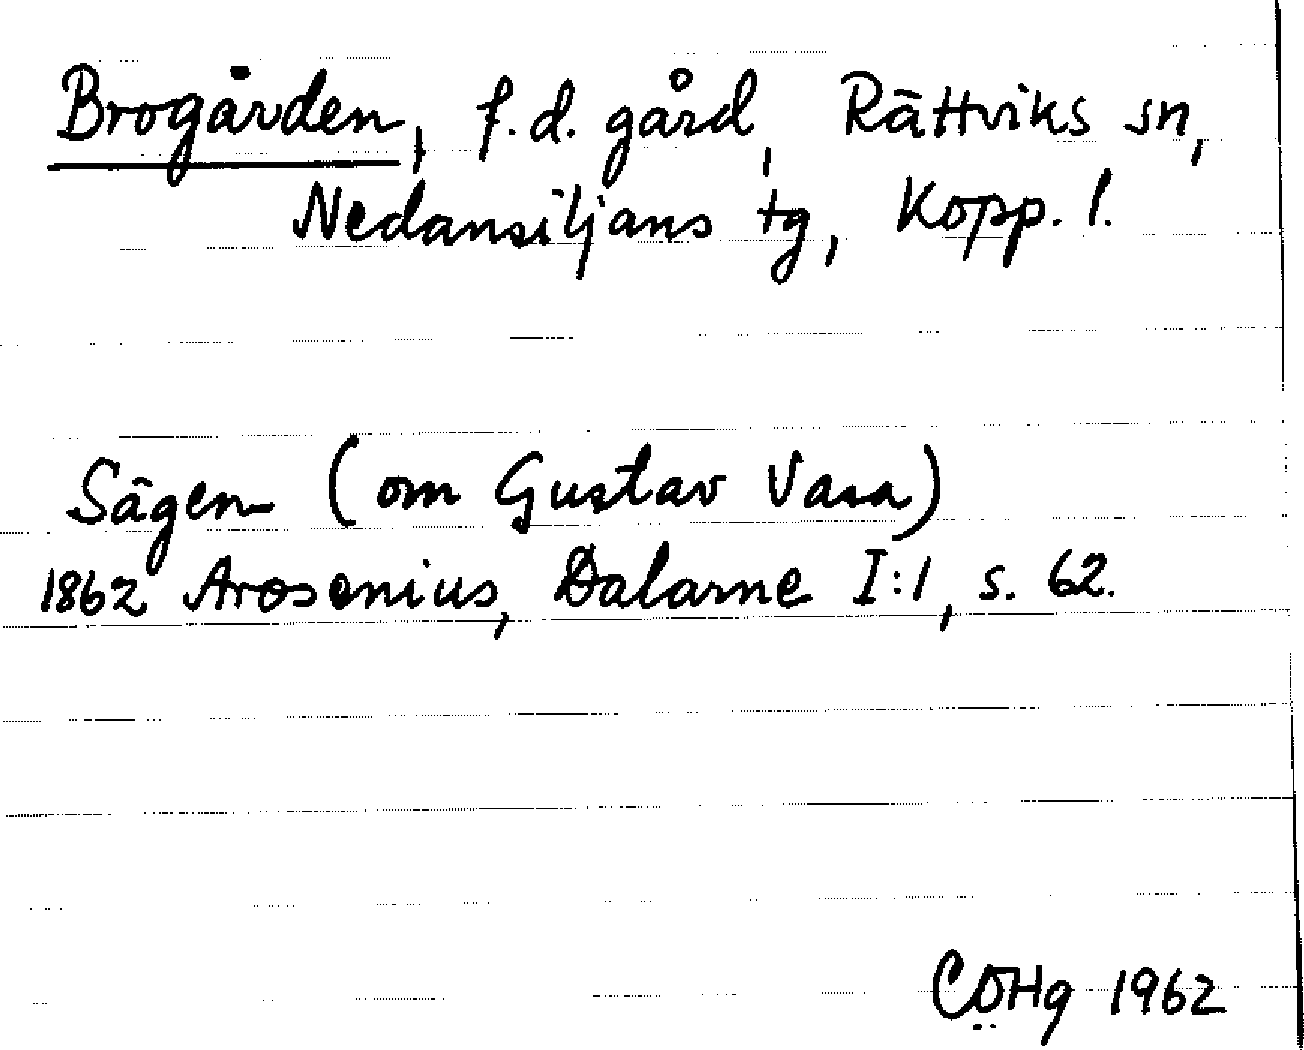 Brogården, f.d. gård, Rättviks sn,
Nedansiljans tg, Kopp. l.
Sägen (om Gustav Vasa)
1862 Arosenius, Dalarne I:1, s. 62.
CÖHg 1962